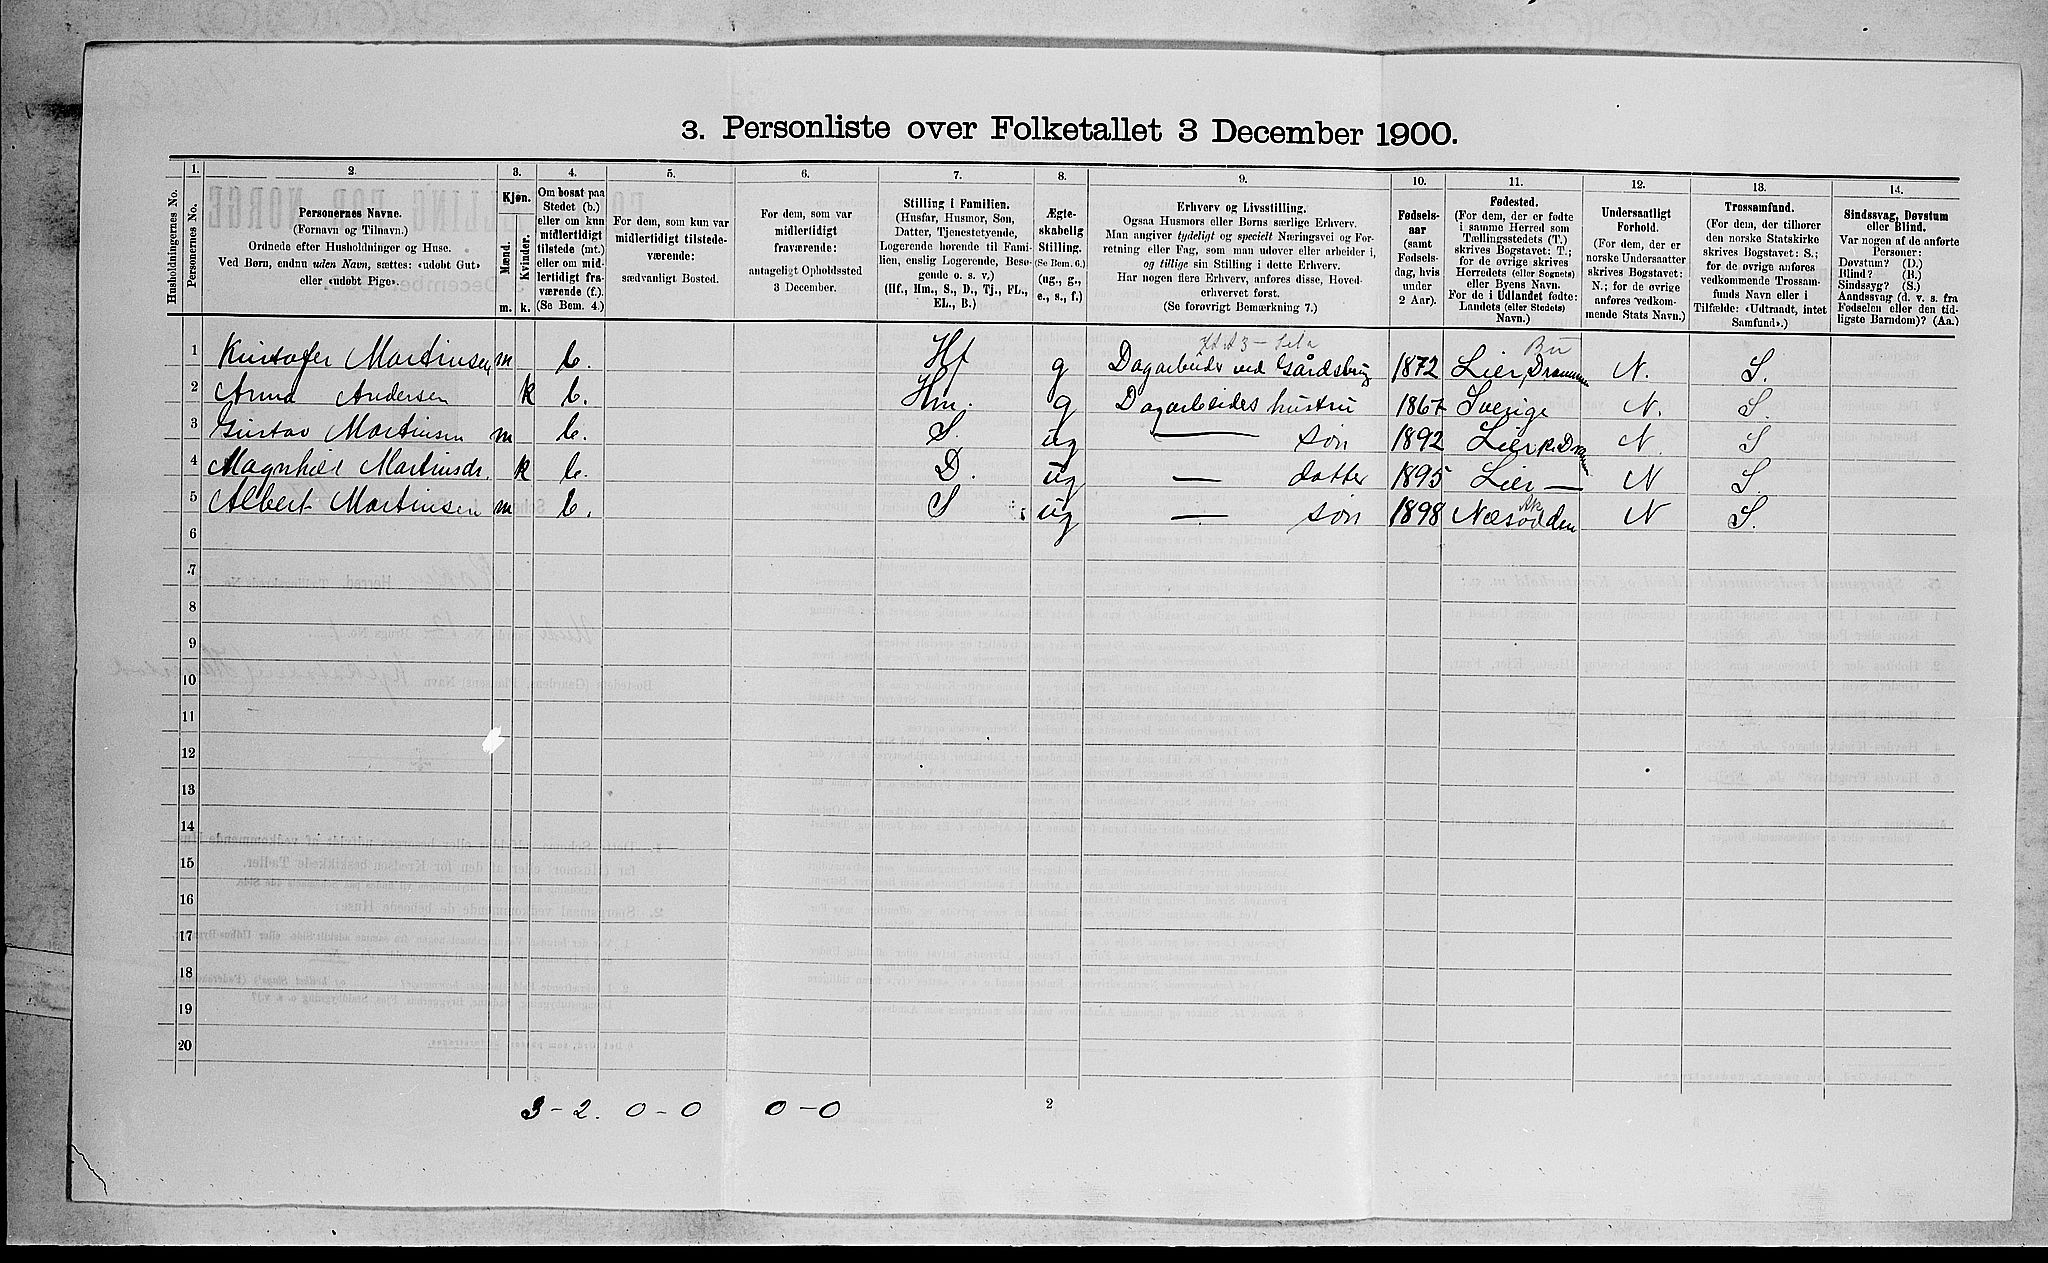 3. Personliste over Folketallet 3 December 1900.
1. 2. 3. 4. 5. 6. 7. 8. 9. 10. 11. 12. 13. 14.
Husholdningernes No.
Personernes No.
Personernes Navne.
(Fornavn og Tilnavn.)
Ordnede efter Husholdninger og Huse.
Ved Børn, endnu uden Navn, sættes: «udøbt Gut»
eller «udøbt Pige».
Kjøn.
Mænd.
Kvinder.
m. k.
Om bosat paa
Stedet (b.)
eller om kun
midlertidigt
tilstede (mt.)
eller om mid-
lertidigt fra-
værende (f.)
(Se Bem. 4.)
For dem, som kun var
midlertidigt tilstede-
værende:
sædvanligt Bosted.
For dem, som var
midlertidigt
fraværende:
antageligt Opholdssted
3 December.
Stilling i Familien.
(Husfar, Husmor, Søn,
Datter, Tjenestetyende,
Logerende hørende til Fami-
lien, enslig Logerende, Besø-
gende o. s. v.)
(Hf., Hm., S., D., Tj., FL.,
EL., B.)
Ægte-
skabelig
Stilling.
(Se Bem. 6.)
(ug., g.,
e., s., f.)
Erhverv og Livsstilling.
Ogsaa Husmors eller Børns særlige Erhverv.
Man angiver tydeligt og specielt Næringsvei og For-
retning eller Fag, som man udøver eller arbeider i,
og tillige sin Stilling i dette Erhverv.
Har nogen flere Erhverv, anføres disse, Hoved-
erhvervet først.
(Se forøvrigt Bemærkning 7.)
Fødsels-
aar
(samt
Fødsels-
dag, hvis
under
2 Aar).
Fødested.
(For dem, der er fødte
i samme Herred som
Tællingsstedets (T.)
skrives Bogstavet: T.;
for de øvrige skrives
Herredets (eller Sognets)
eller Byens Navn.
For de i Udlandet fødte:
Landets (eller Stedets)
Navn.)
Undersaatligt
Forhold.
(For dem, der er
norske Undersaatter
skrives Bogstavet:
N.; for de øvrige
anføres vedkom-
mende Stats Navn.)
Trossamfund.
(For dem, der tilhører
den norske Statskirke
skrives Bogstavet: S.;
for de øvrige anføres
vedkommende Trossam-
funds Navn eller i
Tilfælde: «Udtraadt, intet
Samfund».)
Sindssvag, Døvstum
eller Blind.
Var nogen af de anførte
Personer:
Døvstum? (D.)
Blind? (B.)
Sindssyg? (S.)
Aandssvag (d. v. s. fra
Fødselen eller den tid-
ligste Barndom)? (Aa.)
Bu
1 Kristofer Martinsen m b. Hf g Dagarbeider ved Gårdsbrug 1872 Lier, Drammen N. S.
2 Anna Andersen k b. Hm. g Dagarbeides hustru 1867 Sverige N. S.
3 Gustav Martinsen m b. S. ug — søn 1892 Lier N. S
4 Magnhier Martinsdr. k b. D. ug — datter 1895 Lier — N S.
Ak
5 Albert Martinsen m b. S ug — søn 1898 Næsodden N S.
6
7
8
9
10
11
12
13
14
15
16
17
18
19
20
3-2. 0-0 0-0 2